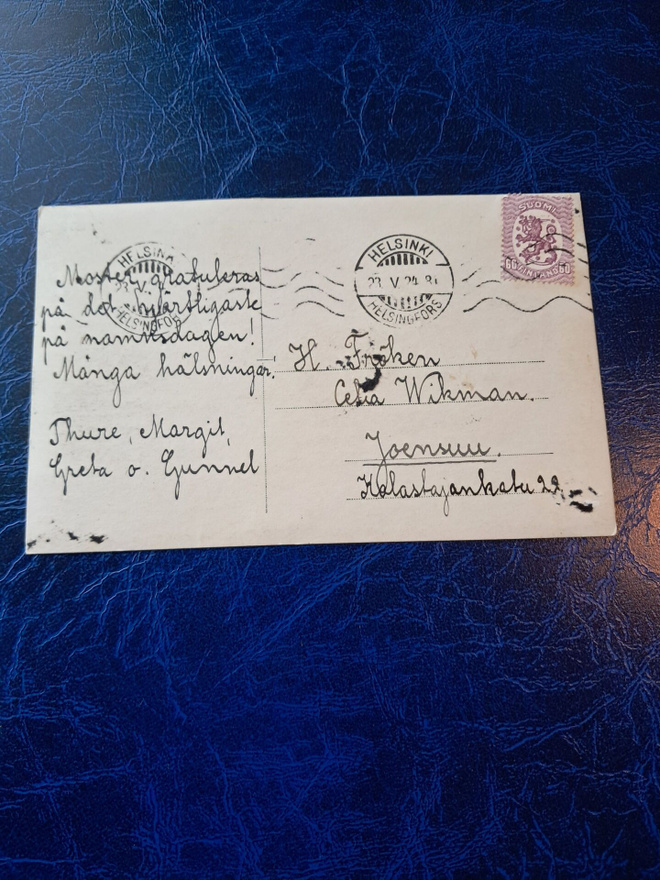 HELSINKI
23. V. 24. 8
HELSINGFORS
SUOMI
60 FINLAND 60
Moster gratuleras
på det hjärtligaste
på namnsdagen!
Många hälsningar!
Thure, Margit,
Greta o. Gunnel
HELSINKI
HELSINGFORS
H. Fröken
Celia Wikman.
Joensuu.
Kalastajankatu 22.